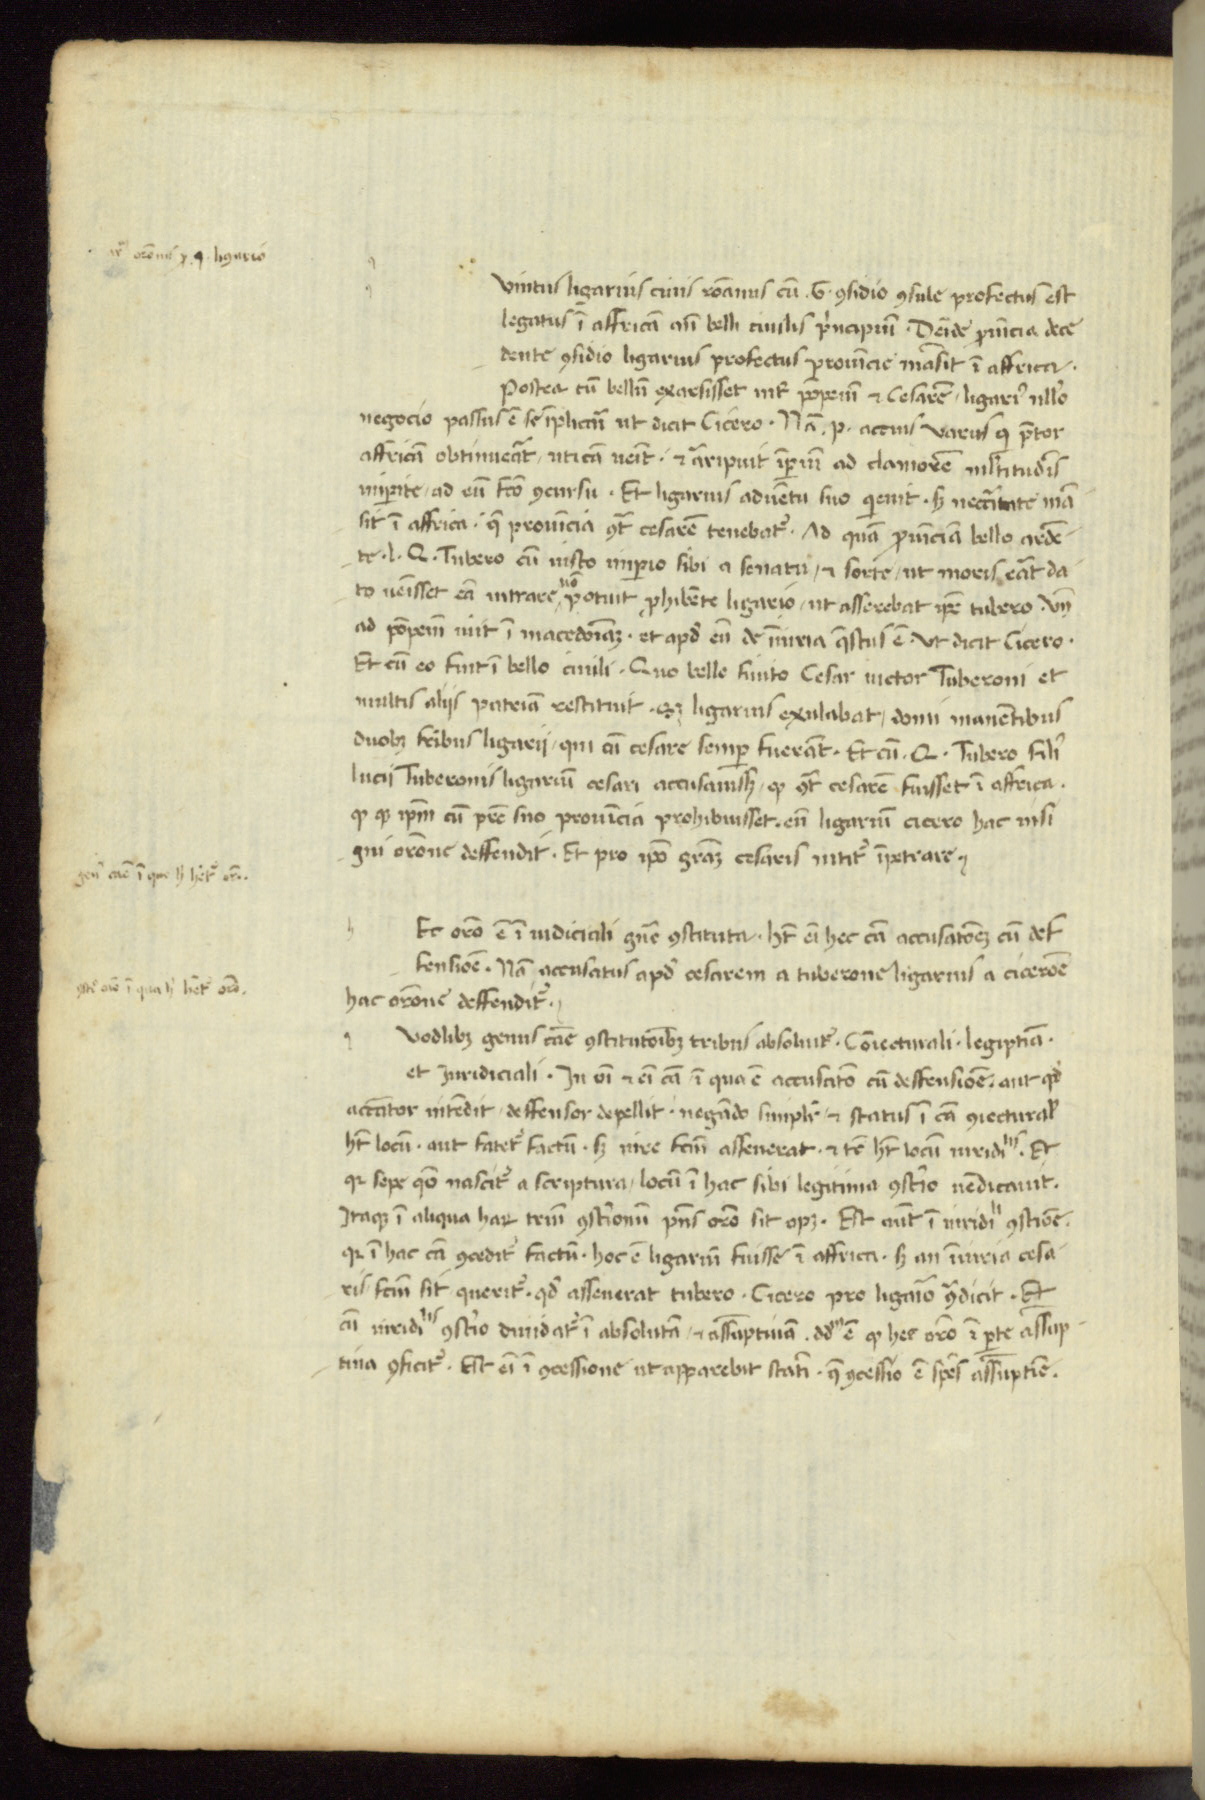 ar̄ orōnis ꝓ .q. ligario
q
q
vintus ligarius ciuis rōanus cū .G. ꝯsidio ꝯsule profectus est
legatus ī affricā añ belli ciuilis pͥncipiū . Deīde ꝓuīcia dece
dente ꝯsidio ligarius profectus prouīcie māsit ī affrica .
Postea cū bellū exarsisset int̄ pōpeiū ⁊ Cesarē / ligariꝰ nllo
negocio passus ē se īplicari ut dicit Cicero . Nā .p. accius varus qͥ p̄tor
affricā obtinueāt / uticā ueīt . ⁊ aripuit īꝑiū ad clamorē mltitudīs
imꝑite / ad eū fc̄o ꝯcursu . Et ligarius aduētu suo qͥeuit . sꝫ necc̄itate mā
sit ī affrica . q̄ prouīcia ꝯt̄ cesarē tenebatᷣ . Ad quā ꝓuīciā bello ardē
te .l. Q. Tubero cū iusto imꝑio sibi a senatu / ⁊ sorte / ut moris eāt da
to ueīsset eā intrare nō potuit ꝓhibēte ligario / ut asserebat ip̄e tubero . Vn̄
ad pōpeiū iuit ī macedoīaꝫ . et apd̄ eū de īiuria q̄stus ē . Vt dicit Cicero .
Et cū eo fuit ī bello ciuili . Quo bello finito Cesar uictor Tuberoni et
multis aliis patriā restituit . Sꝫ ligarius exulabat / domi manētibus
duobꝫ fribus ligarij / qui cū cesare semꝑ fuerāt . Et cū .Q. Tubero filiꝰ
lucii Tuberonis ligariū cesari accusauisset / ꝙ ꝯt̄ cesarē fuisset ī affrica .
⁊ ꝙ ip̄m cū pr̄e suo prouīcia prohibuisset . eū ligariū cicero hac insi
gni orōne deffendit . Et pro ip̄o grāꝫ cesaris nititᷣ īpetrare .
genꝰ cāe ī quo h̄ hētᷣ orō .
h
Ec orō ē ī iudiciali gn̄e ꝯstituta . ht̄ eī hec cā accusatōeꝫ cū def
fensiōe . Nā accusatus apd̄ cesarem a tuberone ligarius a cicerōe
hac orōne deffenditᷣ .
ꝯstō orōe ī qua h̄ hētᷣ orō .
q
vodlibꝫ genus cāe ꝯstitutōibꝫ tribus absoluitᷣ . Coīecturali . legiptīa .
et Iuridiciali . In oī ⁊ eī cā / ī qua ē accusatō cū deffensiōe . aut qd̄
accātor intēdit / deffensor depellit . negādo simplr̄ ⁊ status ī cā ꝯiecturał
ht̄ locū . aut fatetᷣ factū . sꝫ iure fcm̄ asseuerat . ⁊ tē ht̄ locū iuridilis . Et
qꝛ sepe qō nascitᷣ a scriptura / locū ī hac sibi legitima ꝯstō uēdicauit .
Itaqꝫ ī aliqua haꝝ triū ꝯstōnū pn̄s orō sit opꝫ . Est aūt ī iuridili ꝯstiōe .
qꝛ ī hac cā ꝯceditᷣ factū . hoc ē ligariū fuisse ī affrica . sꝫ an īiuria cesa
ris fcm̄ sit queritᷣ . qd̄ asseuerat tubero . Cicero pro ligario ꝯ̄dicit . Et
cū iuridilis ꝯstō diuidatᷣ ī absolutā / ⁊ assūptiuā . dd̄m ē ꝙ hec orō ī parte assūp
tiua ꝯficitᷣ . Est eī ī ꝯcessione ut apparebit statī . q̄ ꝯcessio ē spēs assūptīe .